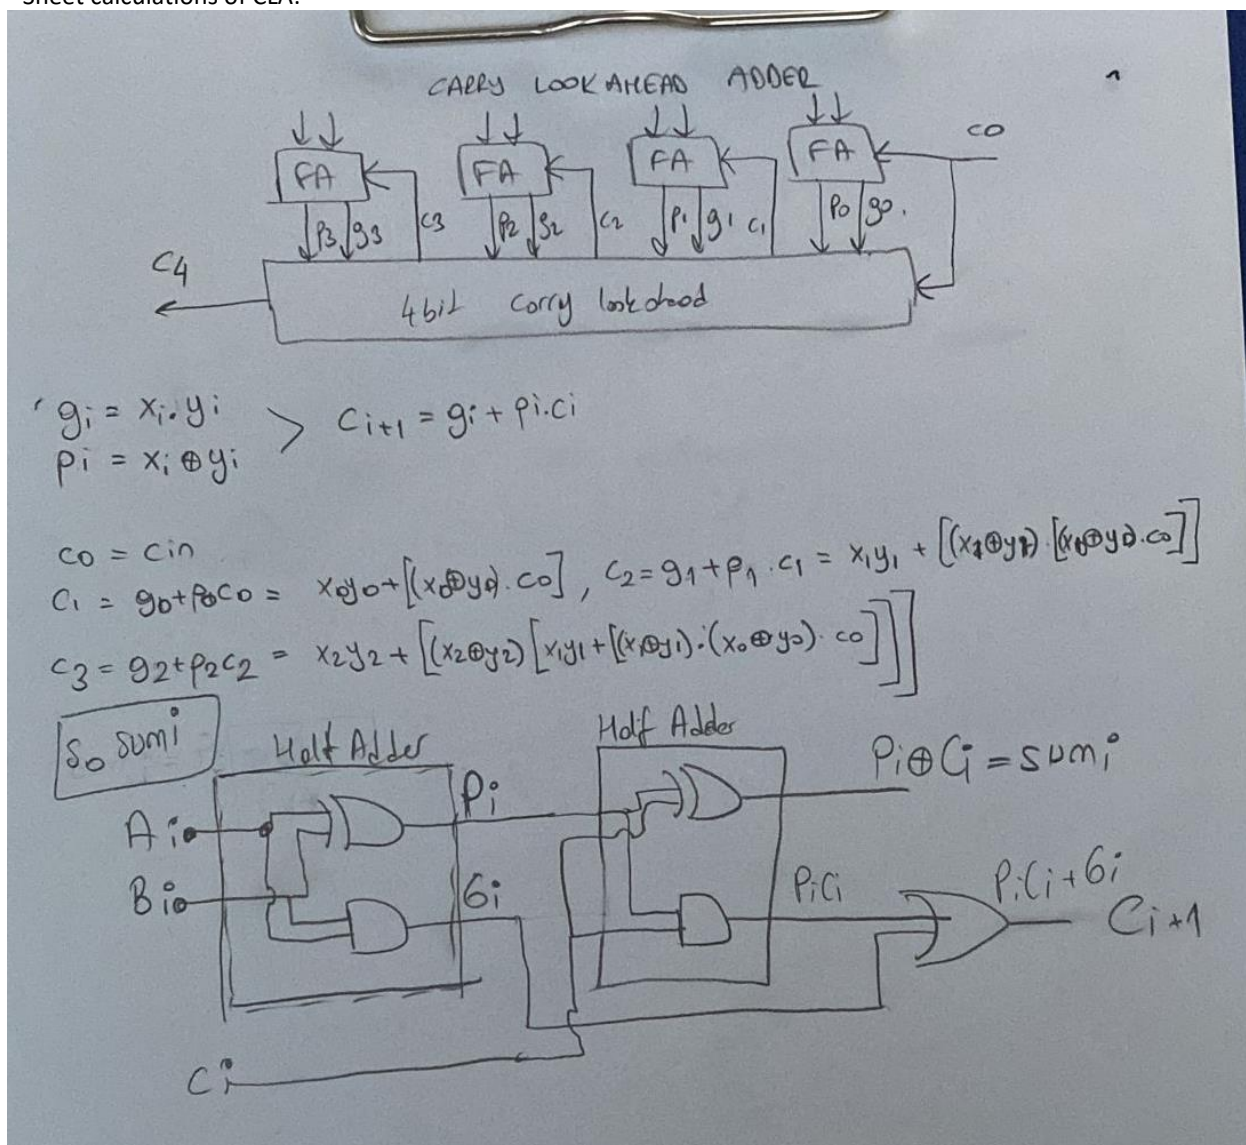 Sheet calculations of CLA:
CARRY LOOK AHEAD ADDER
FA FA FA FA c0
p3 g3 c3 p2 g2 c2 p1 g1 c1 p0 g0.
C4
4bit carry lookahead
gi = xi.yi
pi = xi ⊕ yi
> Ci+1 = gi + pi.ci
c0 = cin
C1 = g0+p0c0 = x0y0+[(x0⊕y0).c0], C2=g1+p1.c1 = x1y1 + [(x1⊕y1).[(x0⊕y0).c0]]
c3 = g2+p2c2 = x2y2 + [(x2⊕y2)[x1y1+[(x1⊕y1).(x0⊕y0).c0]]]
So sumi
Half Adder
Half Adder
Pi⊕Ci = sumi
Ai
Pi
Bi
Gi
PiCi
PiCi+Gi
Ci+1
Ci